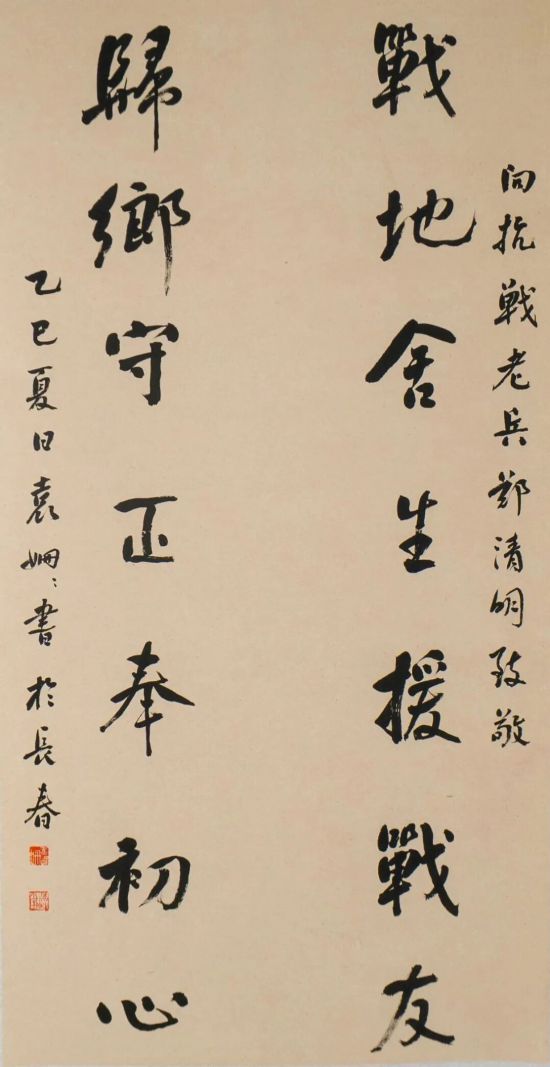 向抗戰老兵鄭清明致敬
戰地舍生援戰友
歸鄉守正奉初心
乙巳夏日袁姍〻書於長春